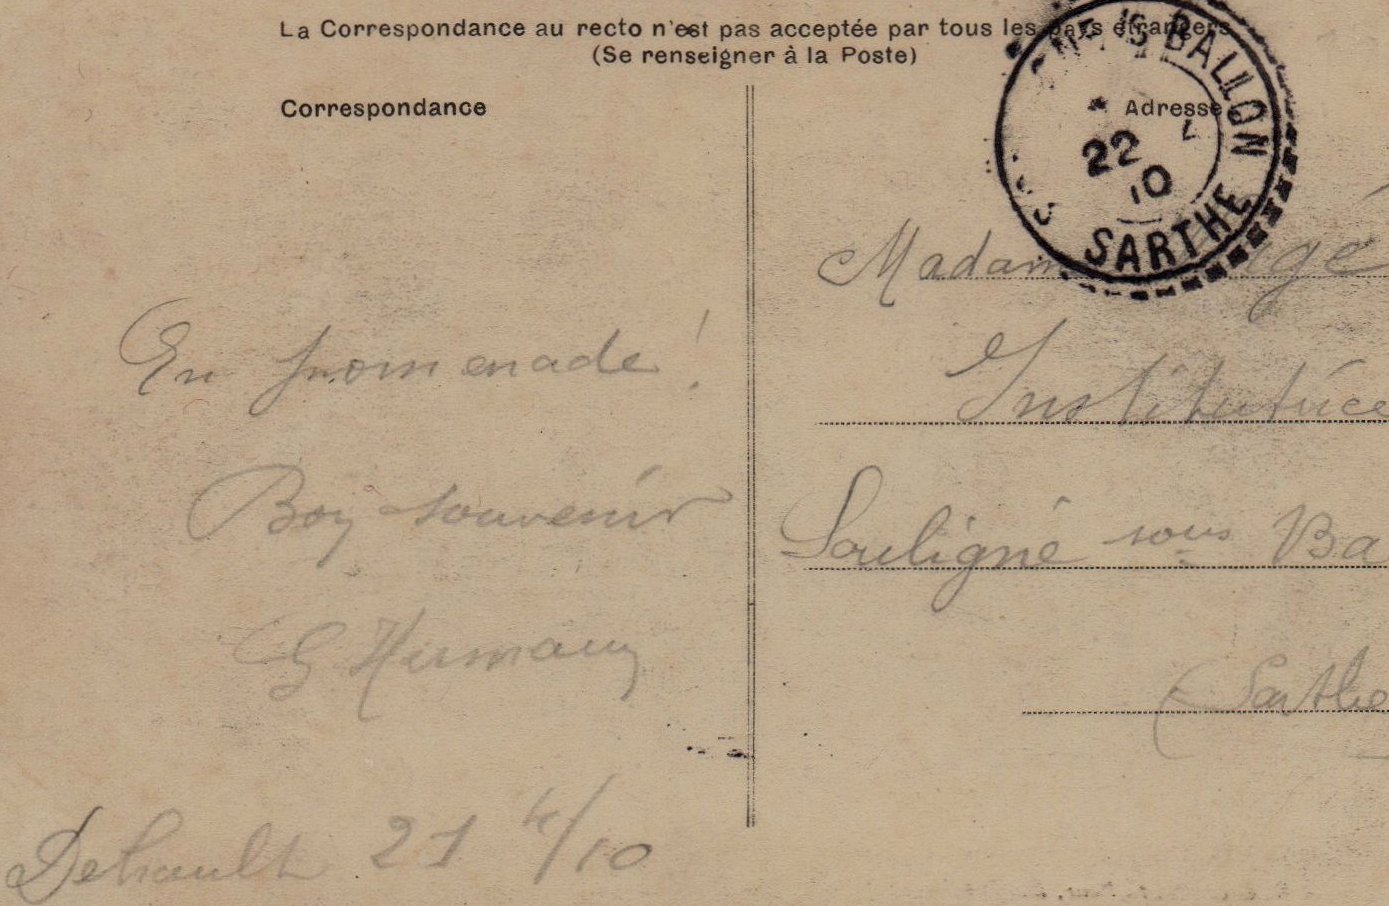 La Correspondance au recto n'est pas acceptée par tous les pays étrangers
(Se renseigner à la Poste)
Correspondance
Adresse
S BALLON
22
10
SARTHE
Madame
Institutrice
Souligné sous Ba
(Sarthe
En promenade!
Bon souvenir
G
Dehault 21 4/10